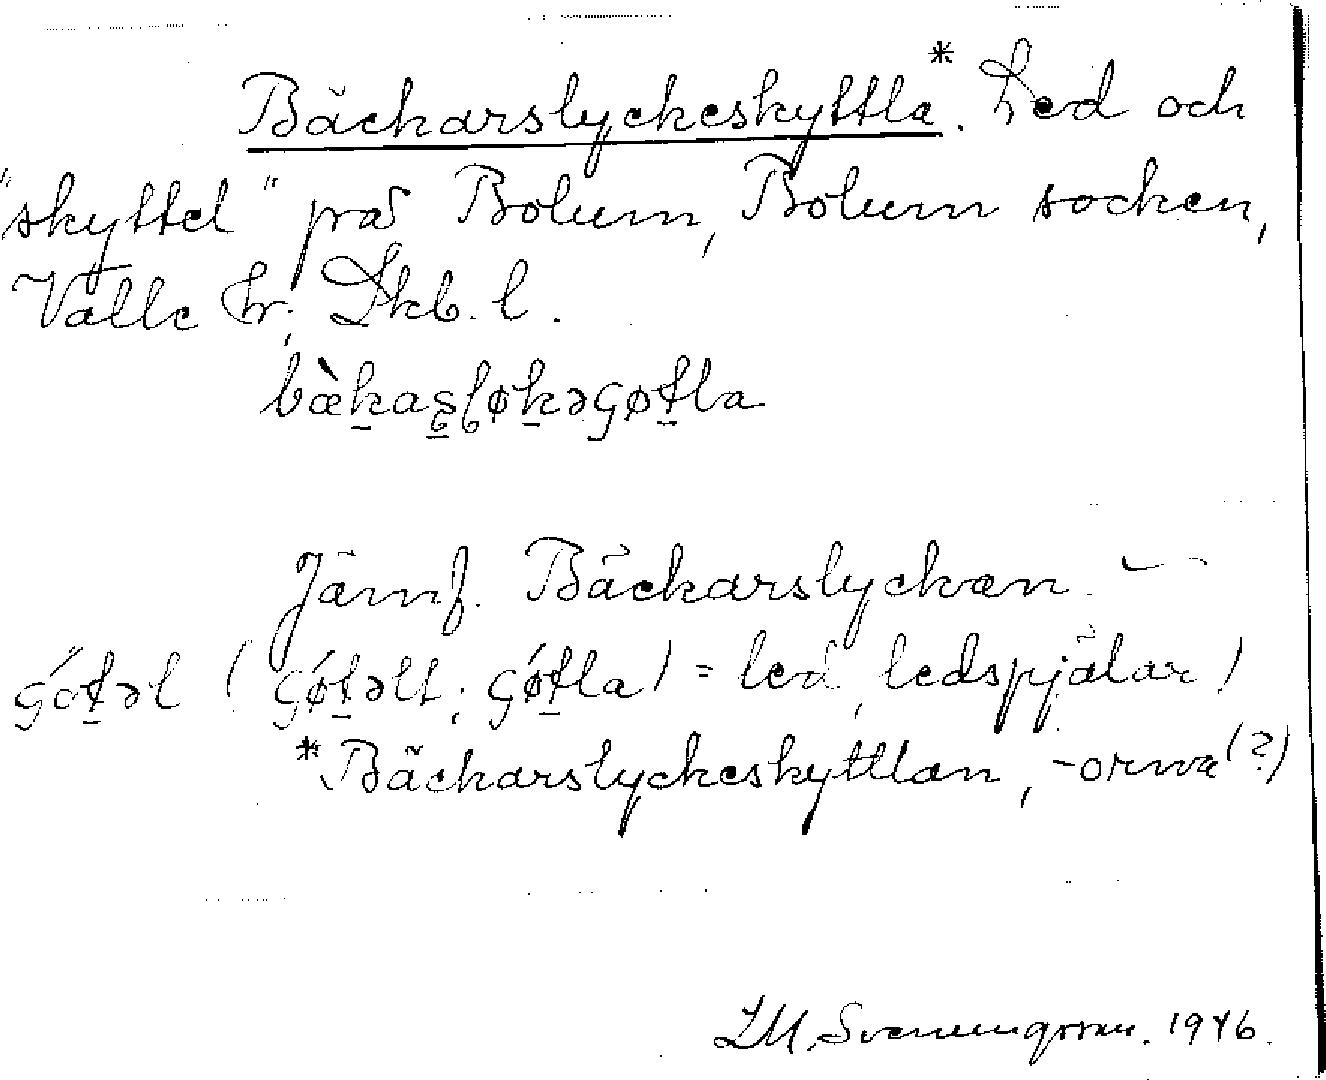 Bäckarslyckeskyttla*. Led och
"skyttel" på Bolum, Bolum socken,
Valle hr, Skb. l.
bæ̀k̲as̲ḷøk̲əgøt̲la
Jämf. Bäckarslyckan.
gǿt̲əl (gǿt̲əlt; gǿt̲la) = led, ledspjälar)
*Bäckarslyckeskyttlan, -orna (?)
1946.